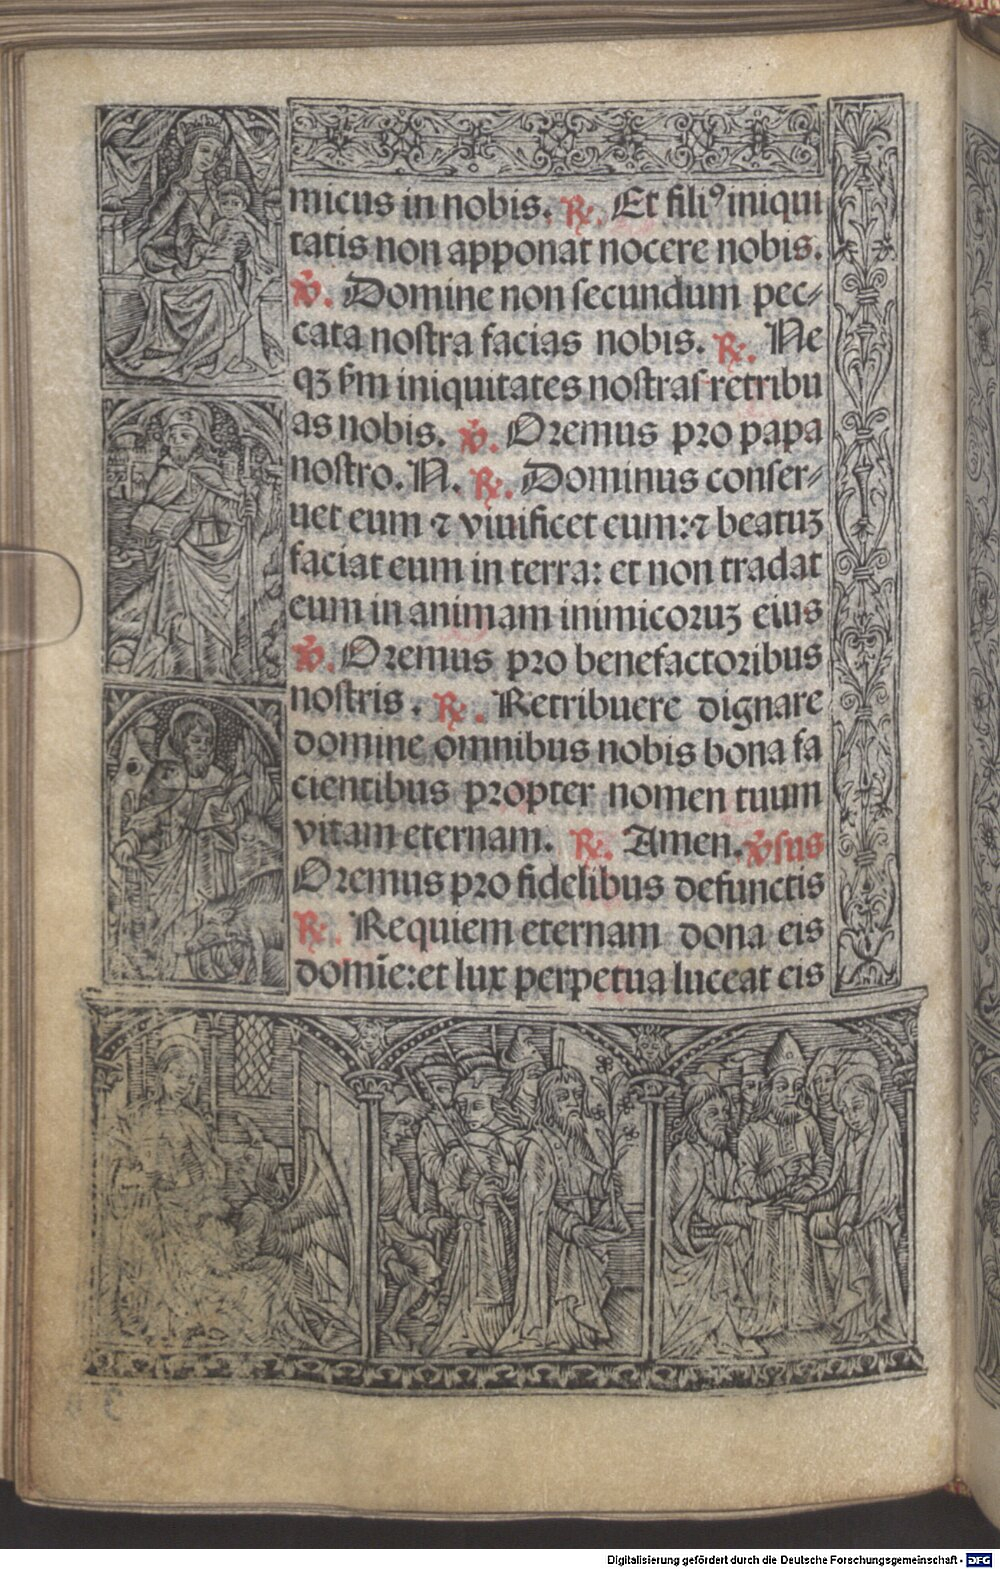 micus in nobis. ℟. Et filiꝰ iniqui
tatis non apponat nocere nobis.
℣. Domine non ſecundum pec⸗
cata noſtra facias nobis. ℟. Ne
qꝫ ẜm iniquitates noſtraſ retribu
as nobis. ℣. Oremus pro papa
noſtro. N. ℟. Dominus conſer⸗
uet eum ⁊ viuificet eum: ⁊ beatuꝫ
faciat eum in terra: et non tradat
eum in animam inimicoruꝫ eius
℣. Oremus pro benefactoribus
noſtris. ℟. Retribuere dignare
domine omnibus nobis bona fa
cientibus propter nomen tuum
vitam eternam. ℟. Amen. ℣ſus
Oremus pro fidelibus defunctis
℟. Requiem eternam dona eis
domīe: et lux perpetua luceat eis
Digitalisierung gefördert durch die Deutsche Forschungsgemeinschaft - DFG